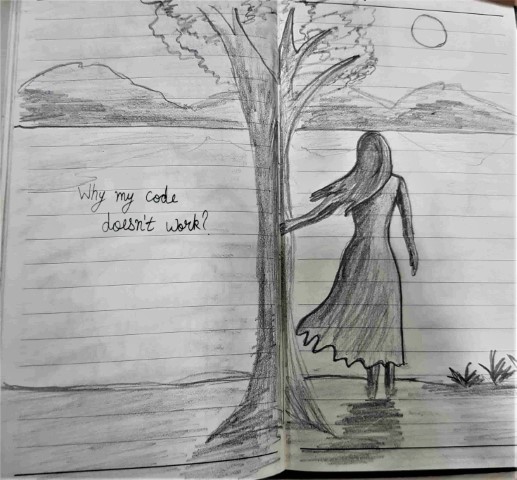 Why my code
doesn't work?